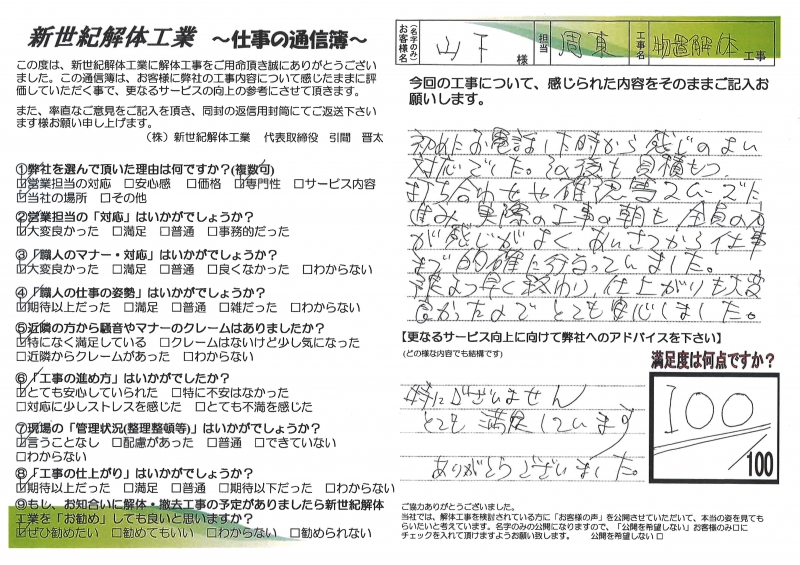 新世紀解体工業 ～仕事の通信簿～
この度は、新世紀解体工業に解体工事をご用命頂き誠にありがとうござい
ました。この通信簿は、お客様に弊社の工事内容について感じたままに評
価していただく事で、更なるサービスの向上の参考にさせて頂きます。
また、率直なご意見をご記入を頂き、同封の返信用封筒にてご返送下さい
ます様お願い申し上げます。
（株）新世紀解体工業　代表取締役　引間　晋太
①弊社を選んで頂いた理由は何ですか？(複数可)
☑営業担当の対応　□安心感　□価格　☑専門性　□サービス内容
☑当社の場所　□その他
②営業担当の「対応」はいかがでしょうか？
☑大変良かった　□満足　□普通　□事務的だった
③「職人のマナー・対応」はいかがでしょうか？
☑大変良かった　□満足　□普通　□良くなかった　□わからない
④「職人の仕事の姿勢」はいかがでしょうか？
☑期待以上だった　□満足　□普通　□雑だった　□わからない
⑤近隣の方から騒音やマナーのクレームはありましたか？
☑特になく満足している　□クレームはないけど少し気になった
□近隣からクレームがあった　□わからない
⑥「工事の進め方」はいかがでしたか？
☑とても安心していられた　□特に不安はなかった
□対応に少しストレスを感じた　□とても不満を感じた
⑦現場の「管理状況(整理整頓等)」はいかがでしょうか？
☑言うことなし　□配慮があった　□普通　□できていない
□わからない
⑧「工事の仕上がり」はいかがでしょうか？
☑期待以上だった　□満足　□普通　□期待以下だった　□わからない
⑨もし、お知合いに解体・撤去工事の予定がありましたら新世紀解体
工業を「お勧め」しても良いと思いますか？
☑ぜひ勧めたい　□勧めてもいい　□わからない　□勧められない
お客様名(名字のみ)　山下　様　担当　周東　工事名　物置解体　工事
今回の工事について、感じられた内容をそのままご記入お
願いします。
初めにお電話した時から感じのよい
対応でした。その後も見積もり
打ち合わせせ確認等スムーズに
進み、実際の工事の朝も全員の方
が感じがよく、あいさつから仕事
まで的確に行なっていました。
予定より早く終わり、仕上がりも大変
良かったのでとても安心しました。
【更なるサービス向上に向けて弊社へのアドバイスを下さい】
(どの様な内容でも結構です)
特にございません
とても満足しています
ありがとうございました。
満足度は何点ですか？
100
／100
ご協力ありがとうございました。
当社では、解体工事を検討されている方に「お客様の声」を公開させていただいて、本当の姿を見ても
らいたいと考えています。名字のみの公開になりますので、「公開を希望しない」お客様のみ□に
チェックを入れて頂けますようお願い致します。　公開を希望しない □